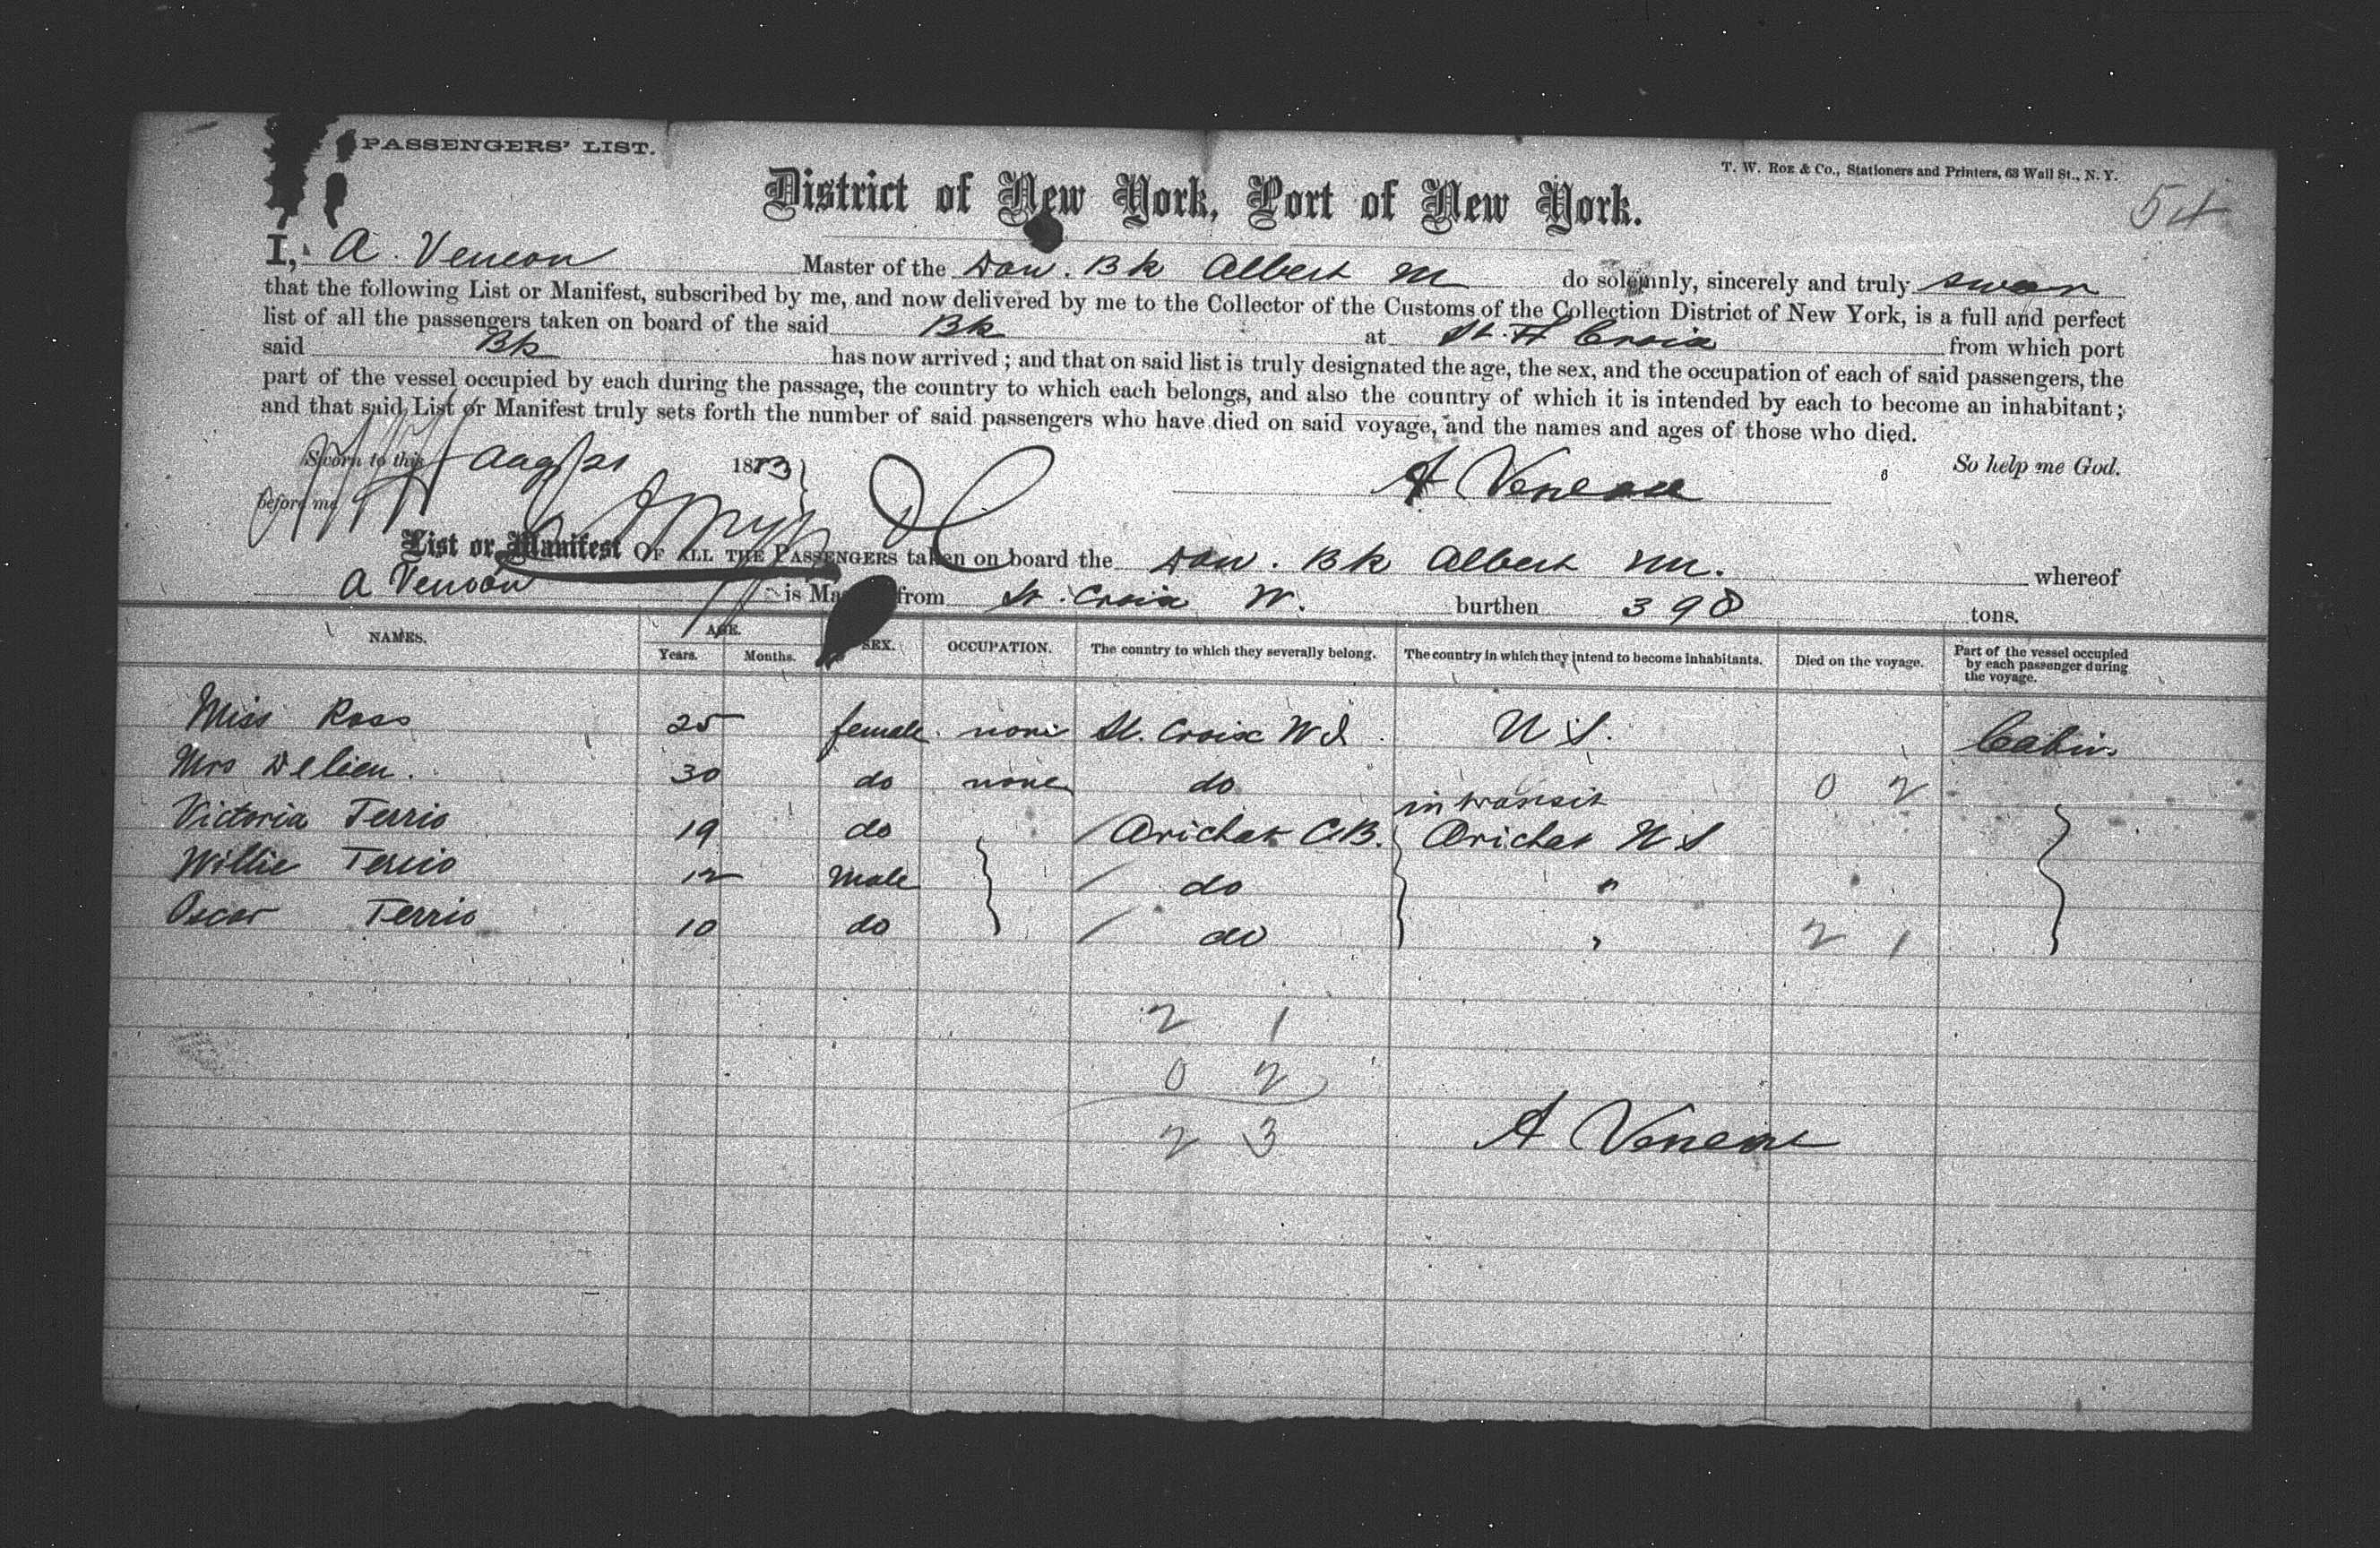 PASSENGERS' LIST.
T. W. Roe & Co., Stationers and Printers, 63 Wall St., N. Y.
54
District of New York, Port of New York.
I, A. Veneon Master of the Dan. Bk Albert M do solemnly, sincerely and truly swear
that the following List or Manifest, subscribed by me, and now delivered by me to the Collector of the Customs of the Collection District of New York, is a full and perfect
list of all the passengers taken on board of the said Bk at St. Croix from which port
said Bk has now arrived; and that on said list is truly designated the age, the sex, and the occupation of each of said passengers, the
part of the vessel occupied by each during the passage, the country to which each belongs, and also the country of which it is intended by each to become an inhabitant;
and that said List or Manifest truly sets forth the number of said passengers who have died on said voyage, and the names and ages of those who died.
So help me God.
Sworn to this Aug 21 1873
before me
A Veneon
List or Manifest OF ALL THE PASSENGERS taken on board the Dan. Bk Albert M. whereof
A Veneon is Ma from St. Croix W. burthen 398 tons.
NAMES. AGE. Years. Months. SEX. OCCUPATION. The country to which they severally belong. The country in which they intend to become inhabitants. Died on the voyage. Part of the vessel occupied by each passenger during the voyage.
Miss Ross 25 female none St. Croix W I U S. Cabin
Mrs Delien. 30 do none do 0 2
in transit
Victoria Terrio 19 do Arichat C.B. Arichat N S
Willie Terrio 12 male do "
Oscar Terrio 10 do do " 2 1
2 1
0 2
2 3
A Veneon